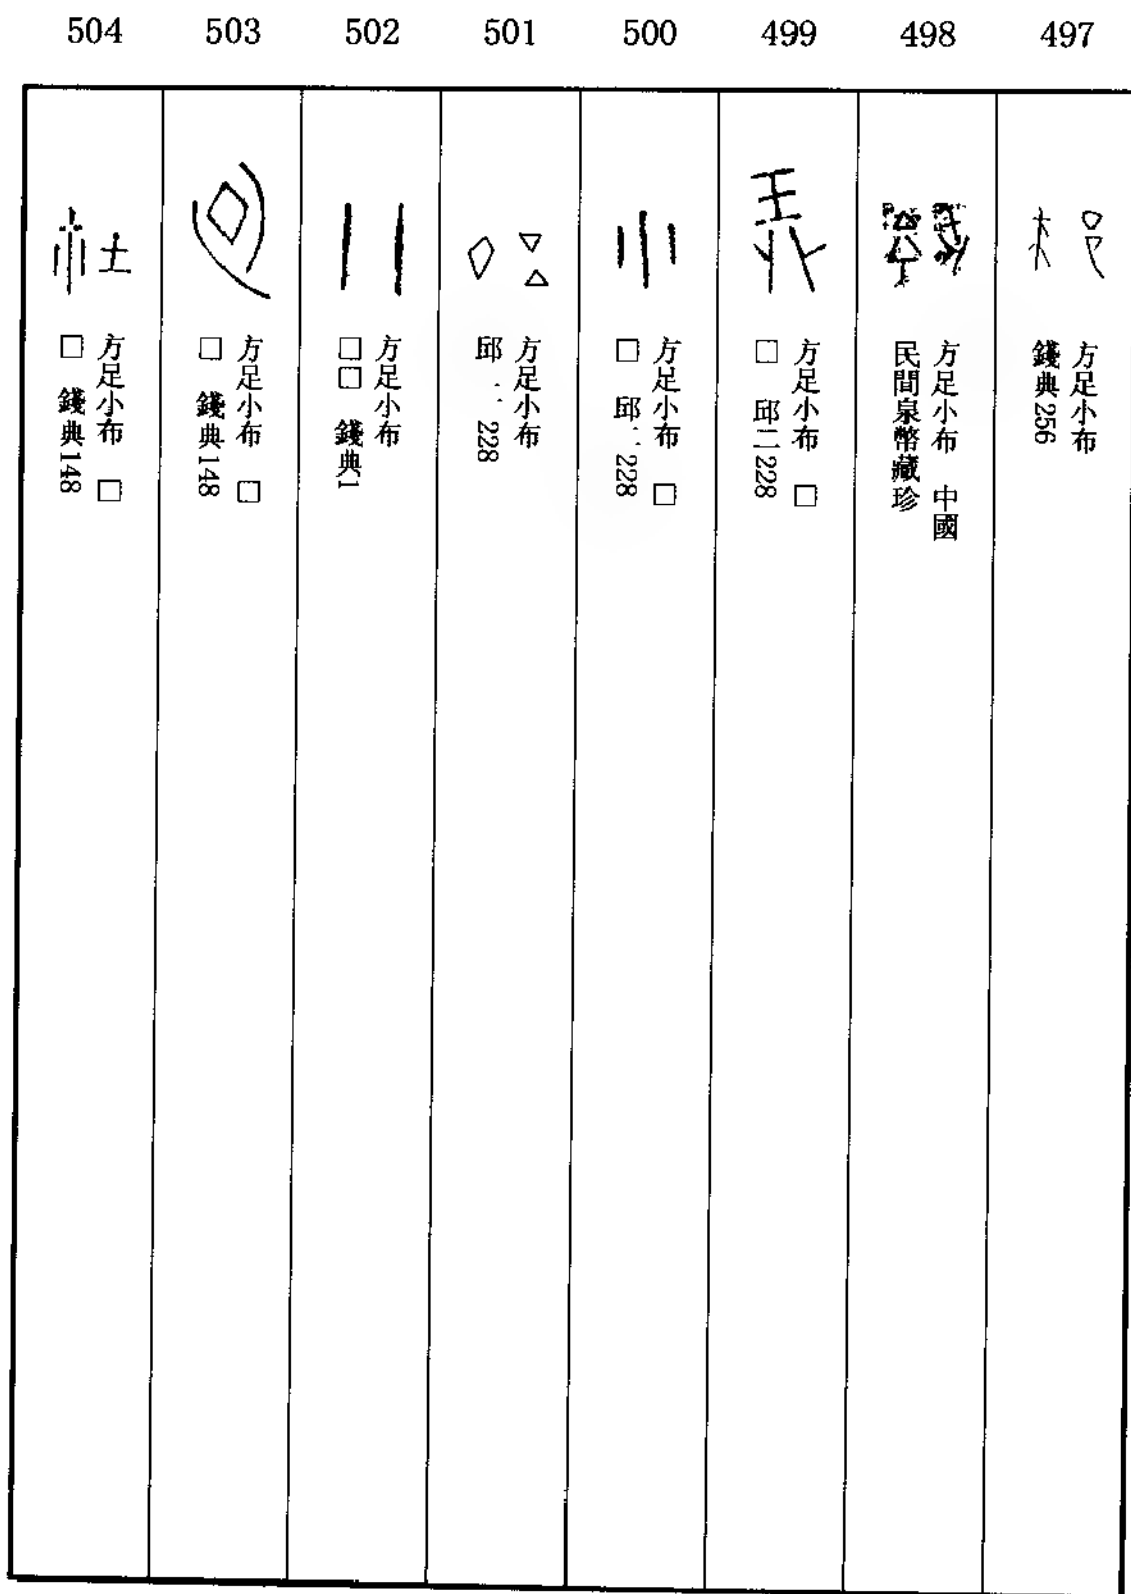 497
方足小布
錢典256
498
方足小布 中國
民間泉幣藏珍
499
方足小布 □
□ 邱二228
500
方足小布 □
□ 邱二228
501
方足小布
邱二228
502
方足小布
□□ 錢典1
503
方足小布 □
□ 錢典148
504
方足小布 □
□ 錢典148